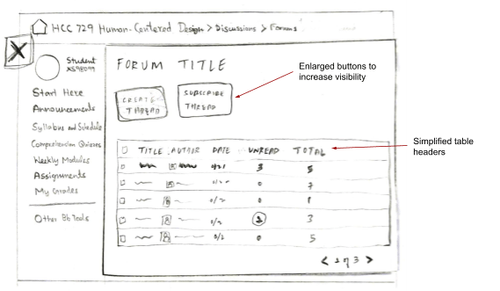 HCC 729 Human-Centered Design > Discussions > Forums
X
Student
XS98099
Start Here
Announcements
Syllabus and Schedule
Comprehension Quizzes
Weekly Modules
Assignments
My Grades
Other Bb Tools
FORUM TITLE
CREATE
THREAD
SUBSCRIBE
THREAD
Enlarged buttons to
increase visibility
Simplified table
headers
TITLE AUTHOR DATE UNREAD TOTAL
3
0 7
0
3 3
0 5
< 1 of 3 >